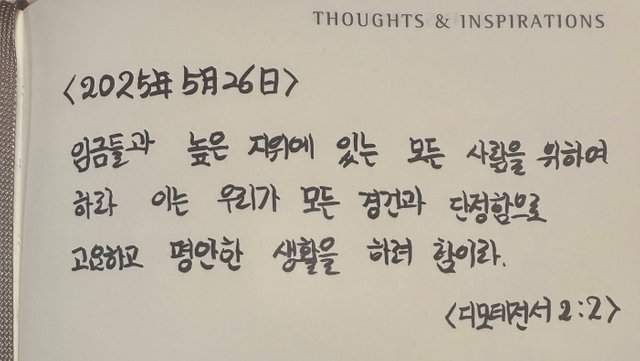 THOUGHTS & INSPIRATIONS
<2025年 5月 26日>
임금들과 높은 지위에 있는 모든 사람을 위하여
하라 이는 우리가 모든 경건과 단정함으로
고요하고 평안한 생활을 하려 함이라.
<디모데전서 2:2>